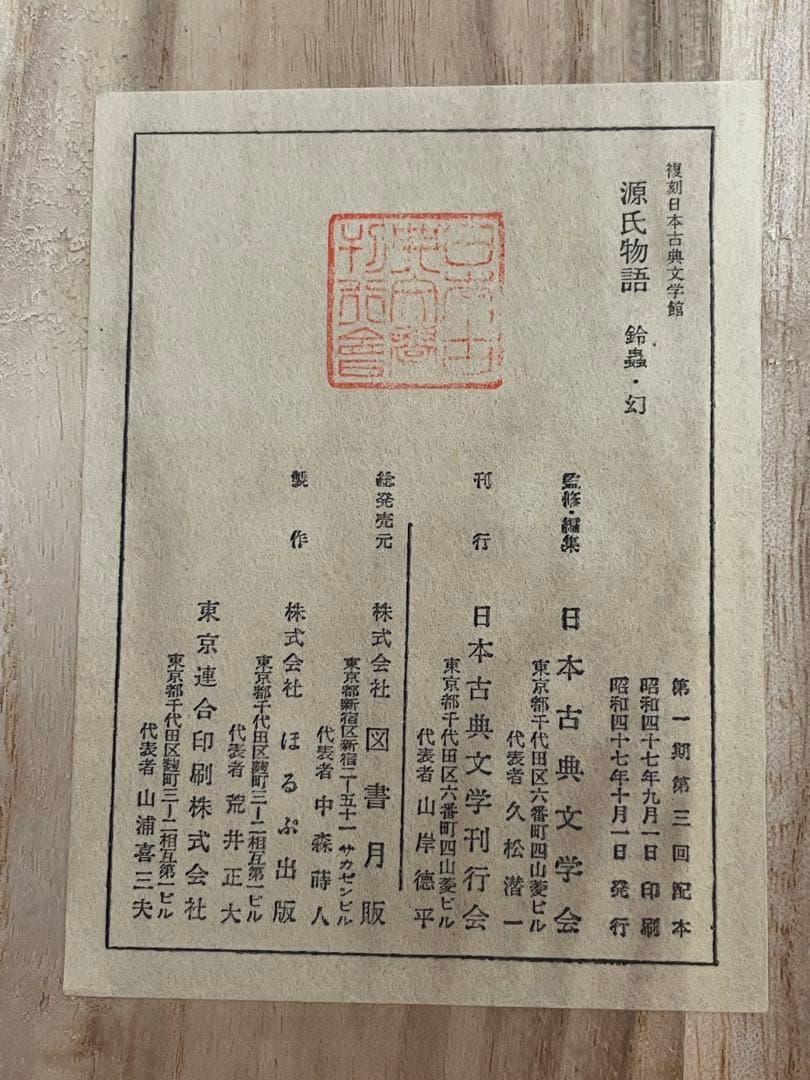 復刻日本古典文学館
源氏物語 鈴蟲・幻
第一期第三回配本
昭和四十七年九月一日 印刷
昭和四十七年十月一日 発行
監修・編集 日本古典文学会
東京都千代田区六番町四山菱ビル
代表者 久松潜一
刊行 日本古典文学刊行会
東京都千代田区六番町四山菱ビル
代表者 山岸徳平
総発売元 株式会社 図書月販
東京都新宿区新宿二ー五十一 サカゼンビル
代表者 中森蒔人
製作 株式会社 ほるぷ出版
東京都千代田区麹町三ー二相互第一ビル
代表者 荒井正大
東京連合印刷株式会社
東京都千代田区麹町三ー二相互第一ビル
代表者 山浦喜三夫
日本古
典文学
刊行會